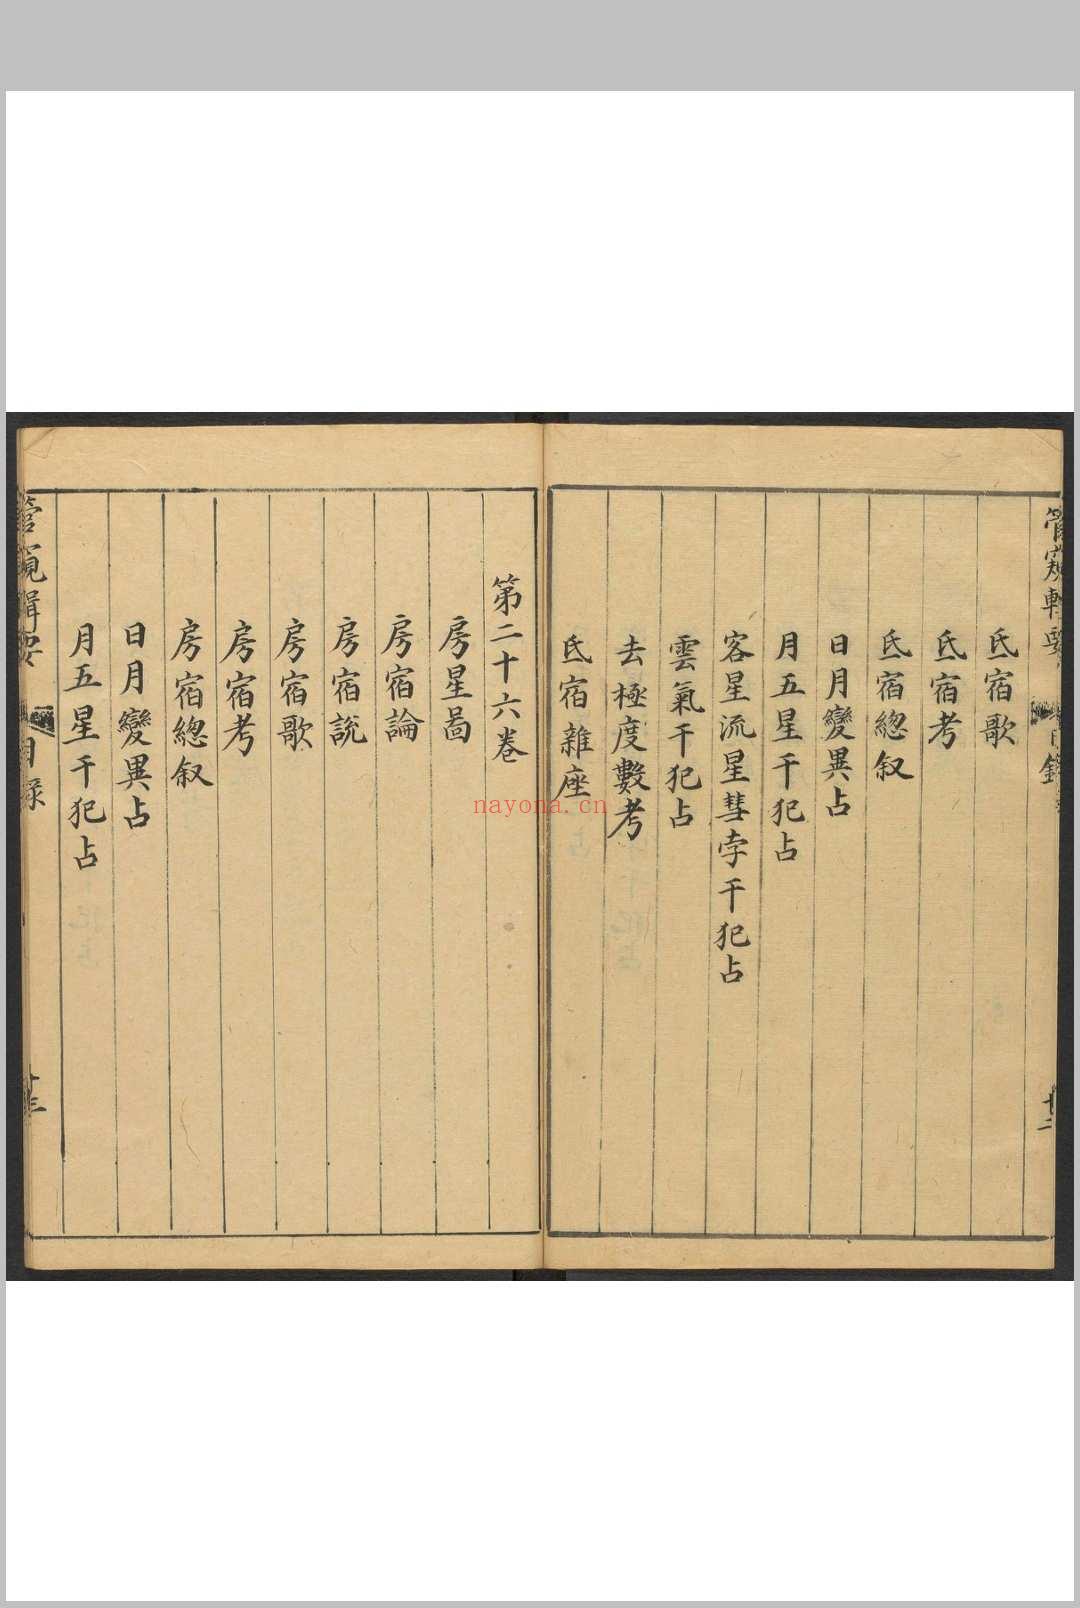 管窺輯要
目錄
氐宿歌
氐宿考
氐宿總叙
日月變異占
月五星干犯占
客星流星彗孛干犯占
雲氣干犯占
去極度數考
氐宿雜座
第二十六卷
房星啚
房宿論
房宿說
房宿歌
房宿考
房宿總叙
日月變異占
月五星干犯占
管窺輯要
目錄
nayona.cn